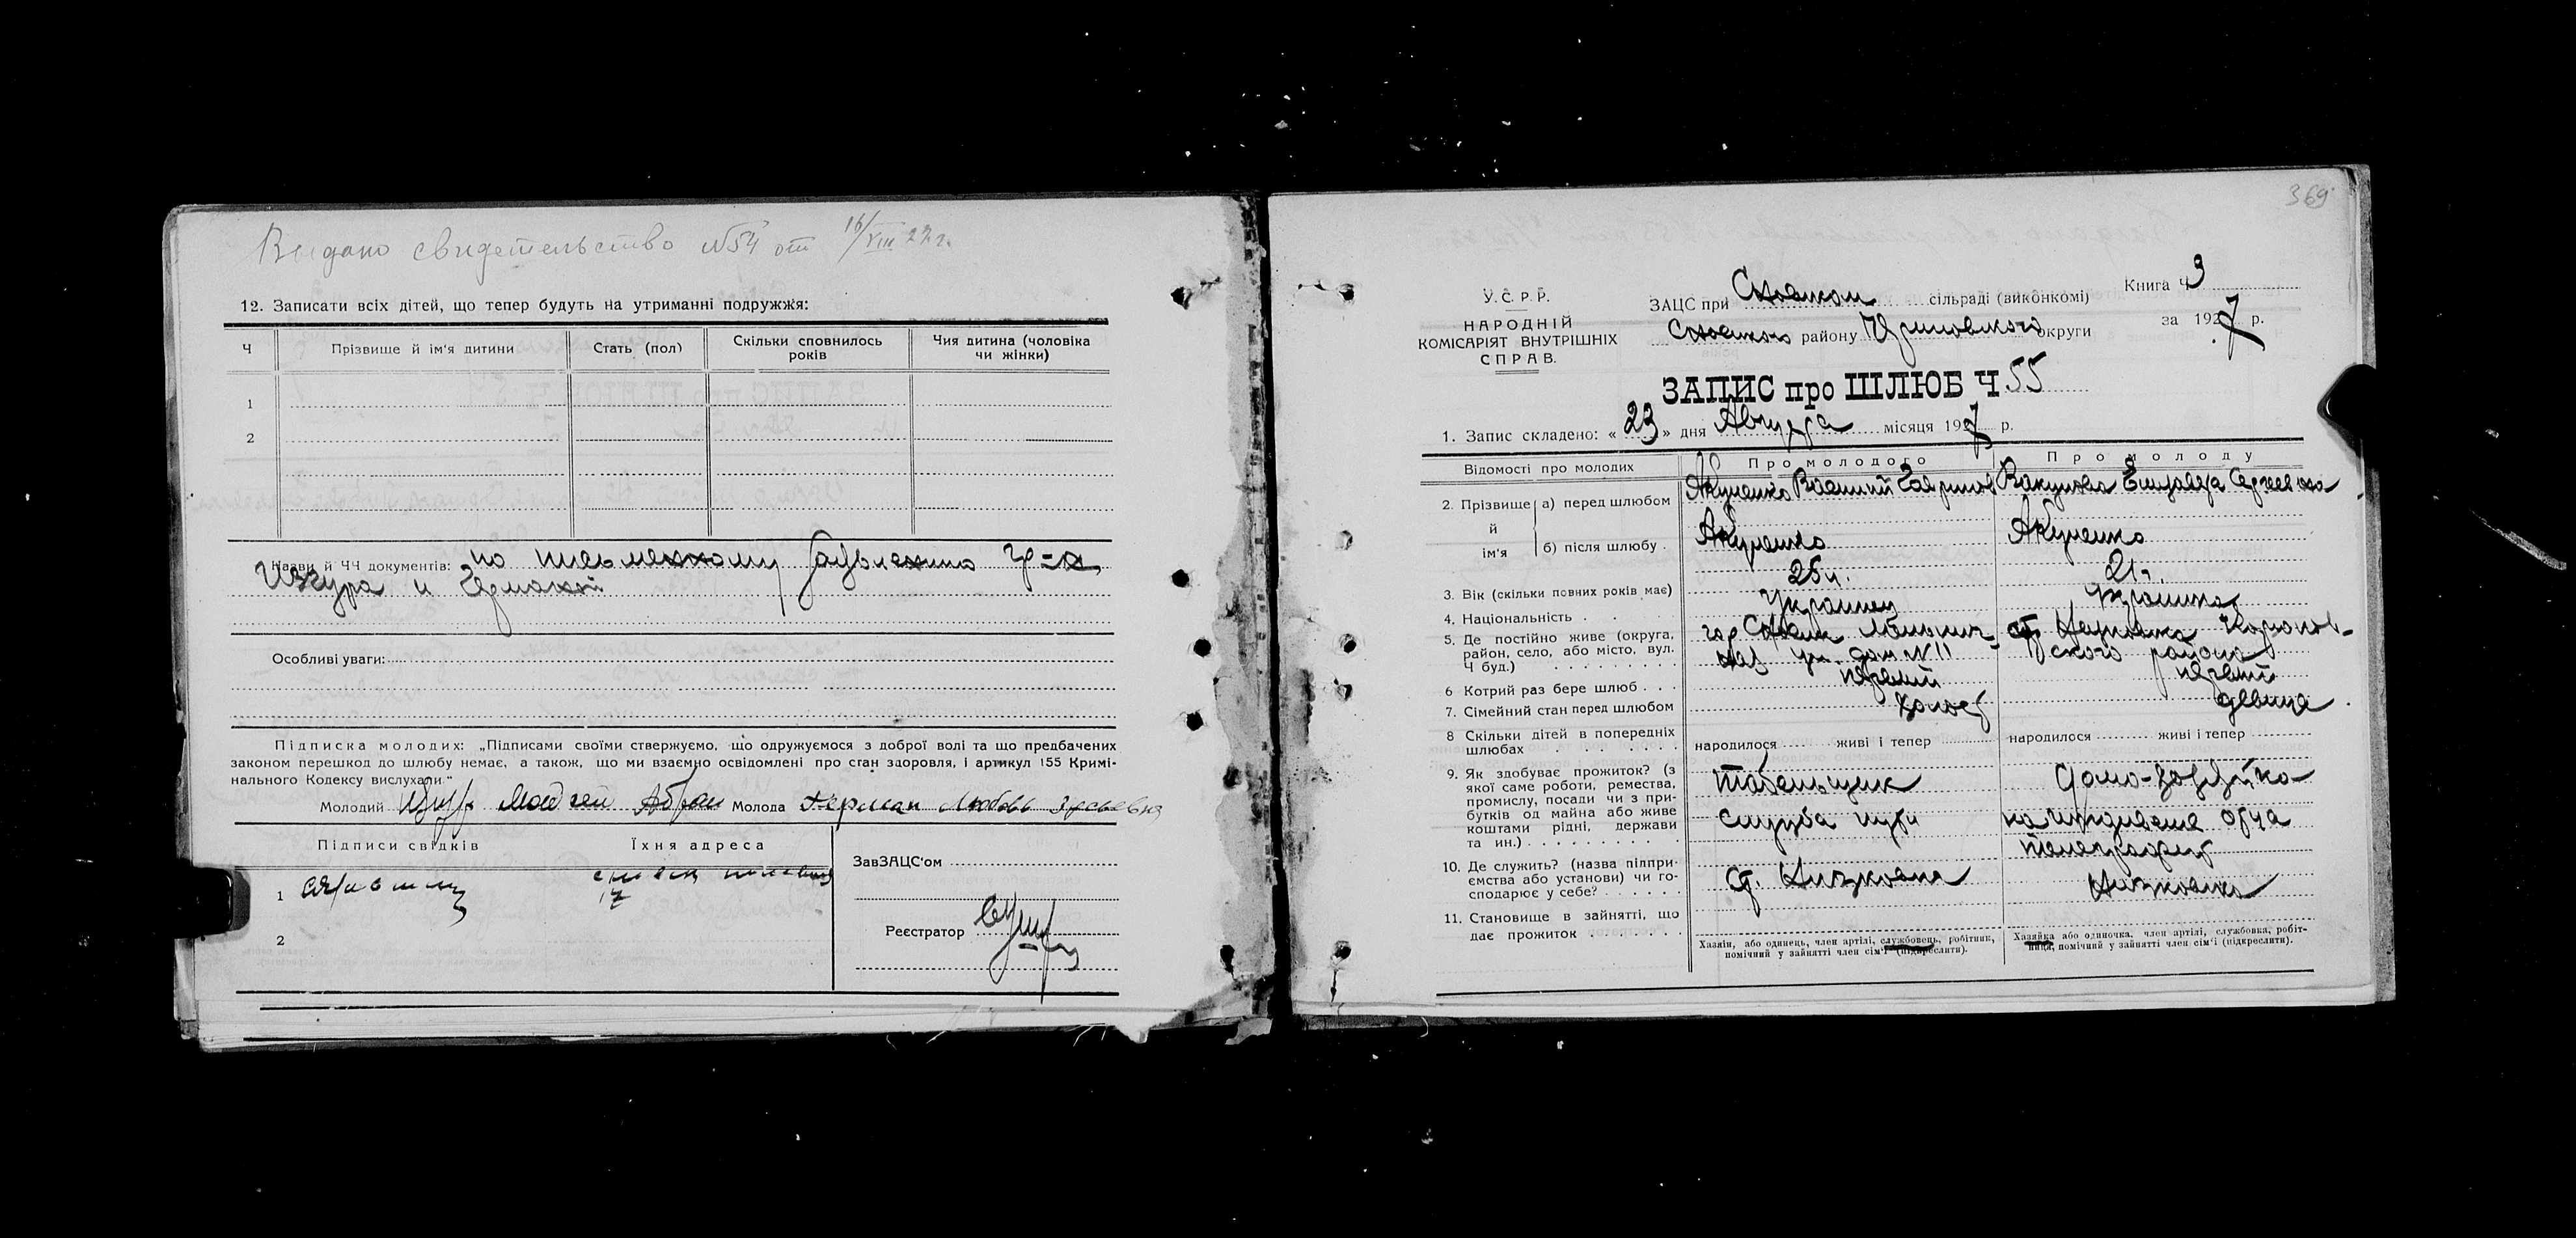 Выдано свидетельство №54 от 16/VIII 27 г.
12. Записати всіх дітей, що тепер будуть на утриманні подружжя:
Ч
Прізвище й ім'я дитини
Стать (пол)
Скільки сповнилось років
Чия дитина (чоловіка чи жінки)
1
2
Назви й ЧЧ документів: по письменному
и
Особливі уваги:
Підписка молодих: „Підписами своїми стверджуємо, що одружуємося з доброї волі та що предбачених
законом перешкод до шлюбу немає, а також, що ми взаємно освідомлені про стан здоровля, і артикул 155 Кримі-
нального Кодексу вислухали"
Молодий Абрам Молода Герман Любовь
Підписи свідків
Їхня адреса
ЗавЗАЦС'ом
1
17
Реєстратор
2
369
У.С.Р.Р.
НАРОДНІЙ
КОМІСАРІЯТ ВНУТРІШНІХ
СПРАВ.
ЗАЦС при Сновском сільраді (виконкомі)
Книга Ч 3
Сновского району округи
за 1927 р.
ЗАПИС про ШЛЮБ Ч 55
1. Запис складено: «23» дня Августа місяця 1927 р.
Відомості про молодих
Про молодого
Про молоду
2. Прізвище й ім'я
а) перед шлюбом
Акуленко Василий
Елизавета Сергеевна
б) після шлюбу
Акуленко
Акуленко
3. Вік (скільки повних років має)
25 л.
21 г.
4. Національність
Украинец
Украинка
5. Де постійно живе (округа, район, село, або місто, вул. Ч буд.)
гор Сновск ул. дом №11
ст. Низковка ского района
6 Котрий раз бере шлюб
первый
первый
7. Сімейний стан перед шлюбом
холост
девица
8 Скільки дітей в попередніх шлюбах
народилося живі і тепер
народилося живі і тепер
9. Як здобуває прожиток? (з якої саме роботи, ремества, промислу, посади чи з прибутків од майна або живе коштами рідні, держави та ин.)
табельщик
служба пути
домо-хозяйка
на иждивении отца
10. Де служить? (назва підприємства або установи) чи господарює у себе?
ст. Низковка
Низковка
11. Становище в зайнятті, що дає прожиток
Хазяїн, або одинець, член артілі, службовець, робітник,
помічний у зайнятті член сім'ї (підкреслити).
Хазяйка або одиночка, член артілі, службовка, робіт-
ниця, помічний у зайнятті член сім'ї (підкреслити).